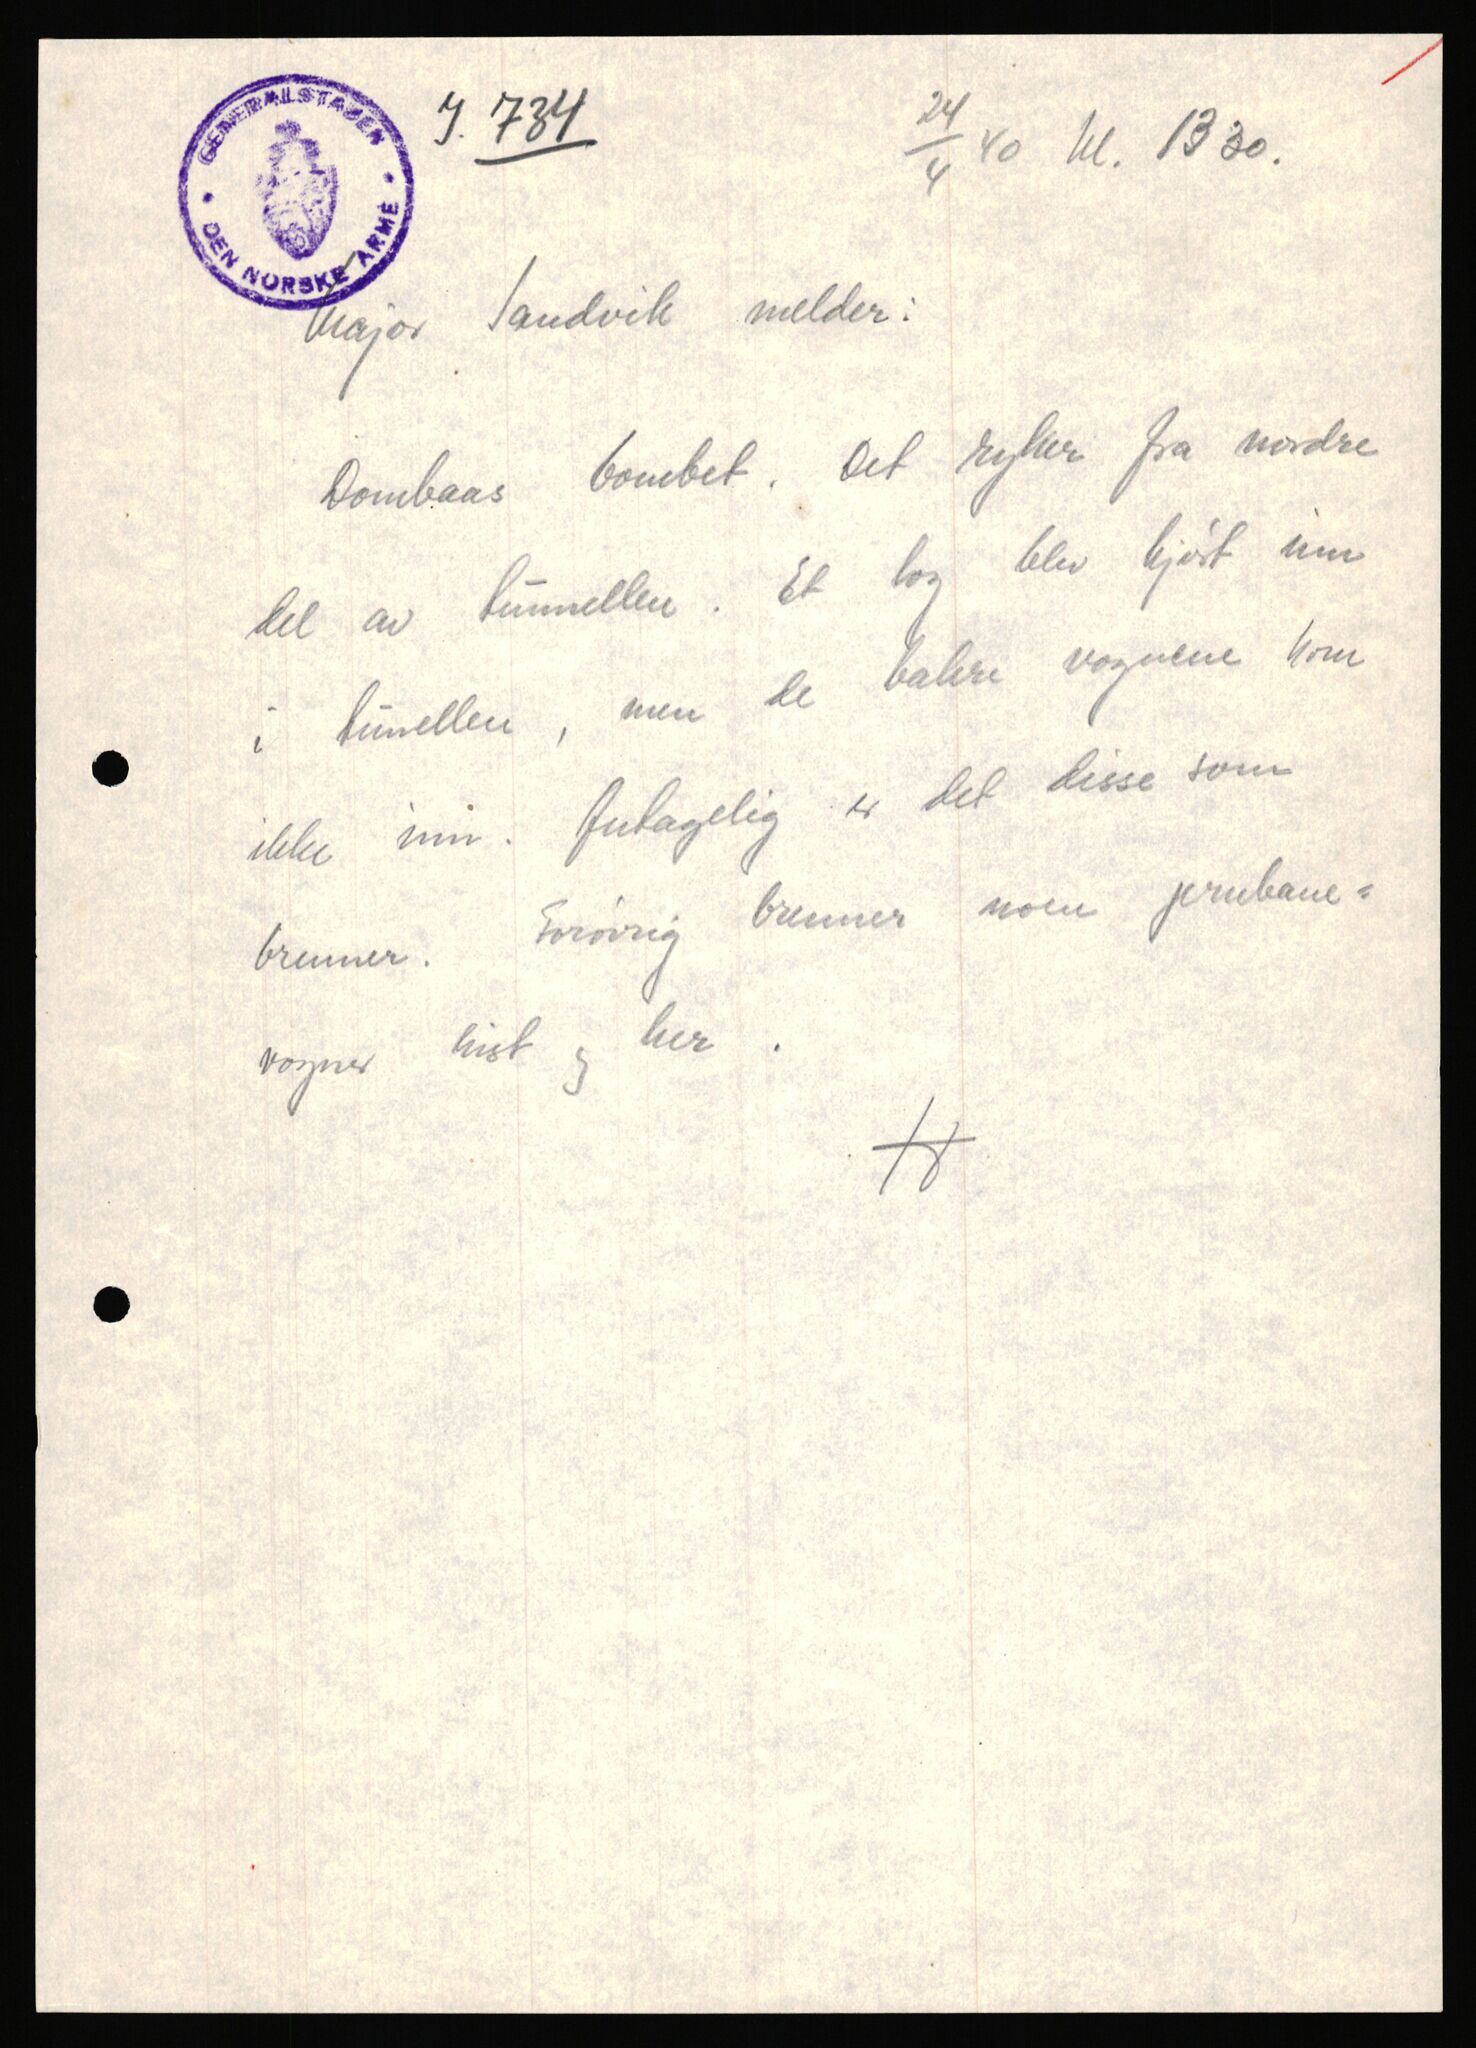 GENERALSTABEN
DEN NORSKE ARME
J. 734
24/4 40 kl. 13 30.
Major Sandvik melder:
Dombaas bombet. Det ryker fra nordre
del av tunnellen. Et tog blev kjørt inn
i tunellen, men de bakre vognene kom
ikke inn. Antagelig er det disse som
brenner. Forøvrig brenner noen jernbane=
vogner hist og her.